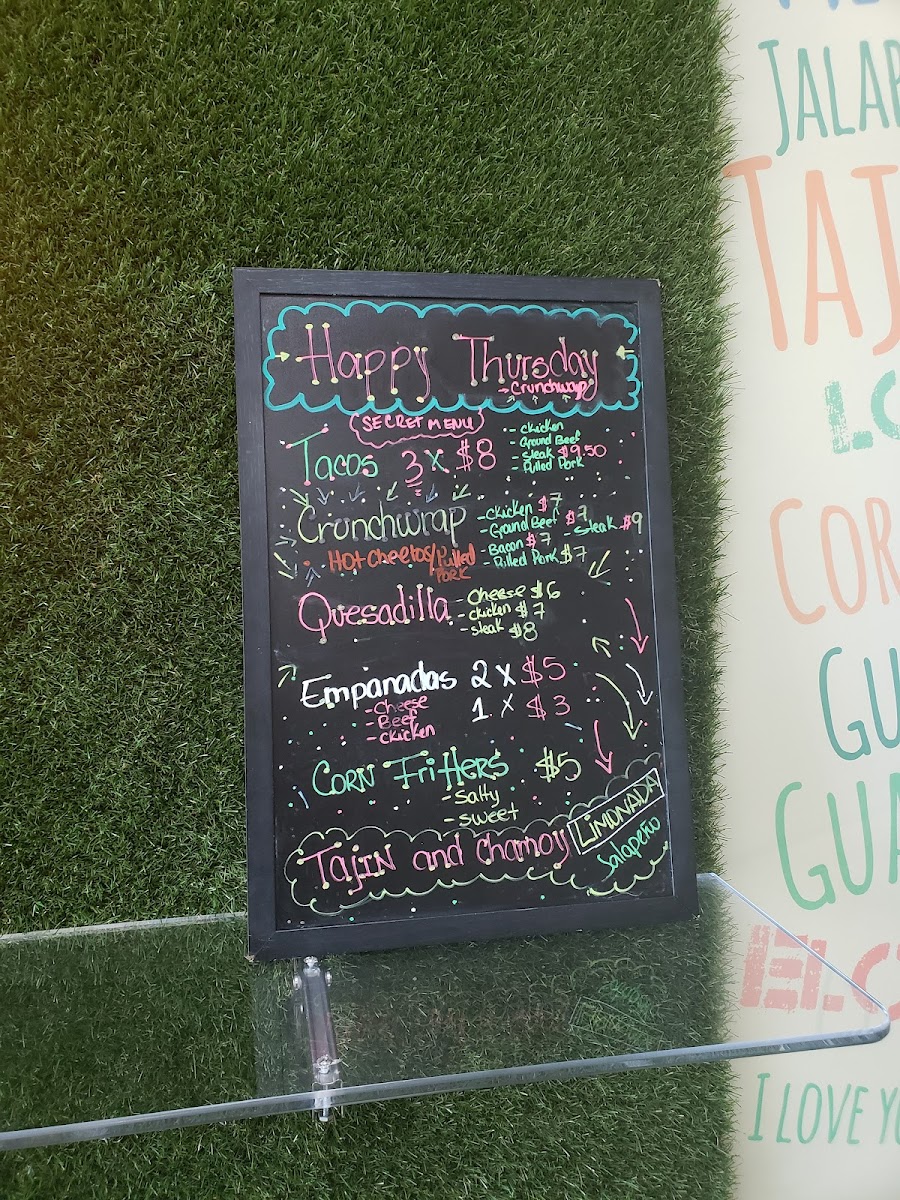 Happy Thursday
→ Crunchwrap
SECRET MENU
Tacos 3 x $8
- chicken
- Ground Beef
- Steak $9.50
- Pulled Pork
Crunchwrap
- Chicken $7
- Ground Beef $7
- Steak $9
- Bacon $7
- Pulled Pork $7
Hot Cheetos/Pulled
Pork
Quesadilla
- Cheese $6
- chicken $7
- steak $8
Empanadas 2 x $5
1 x $3
- Cheese
- Beef
- chicken
Corn Fritters $5
- Salty
- sweet
TAJIN and chamoy
LIMONADA
Jalapeño
JALAP
TAJ
LO
COR
GU
GUA
ELO
I LOVE YO